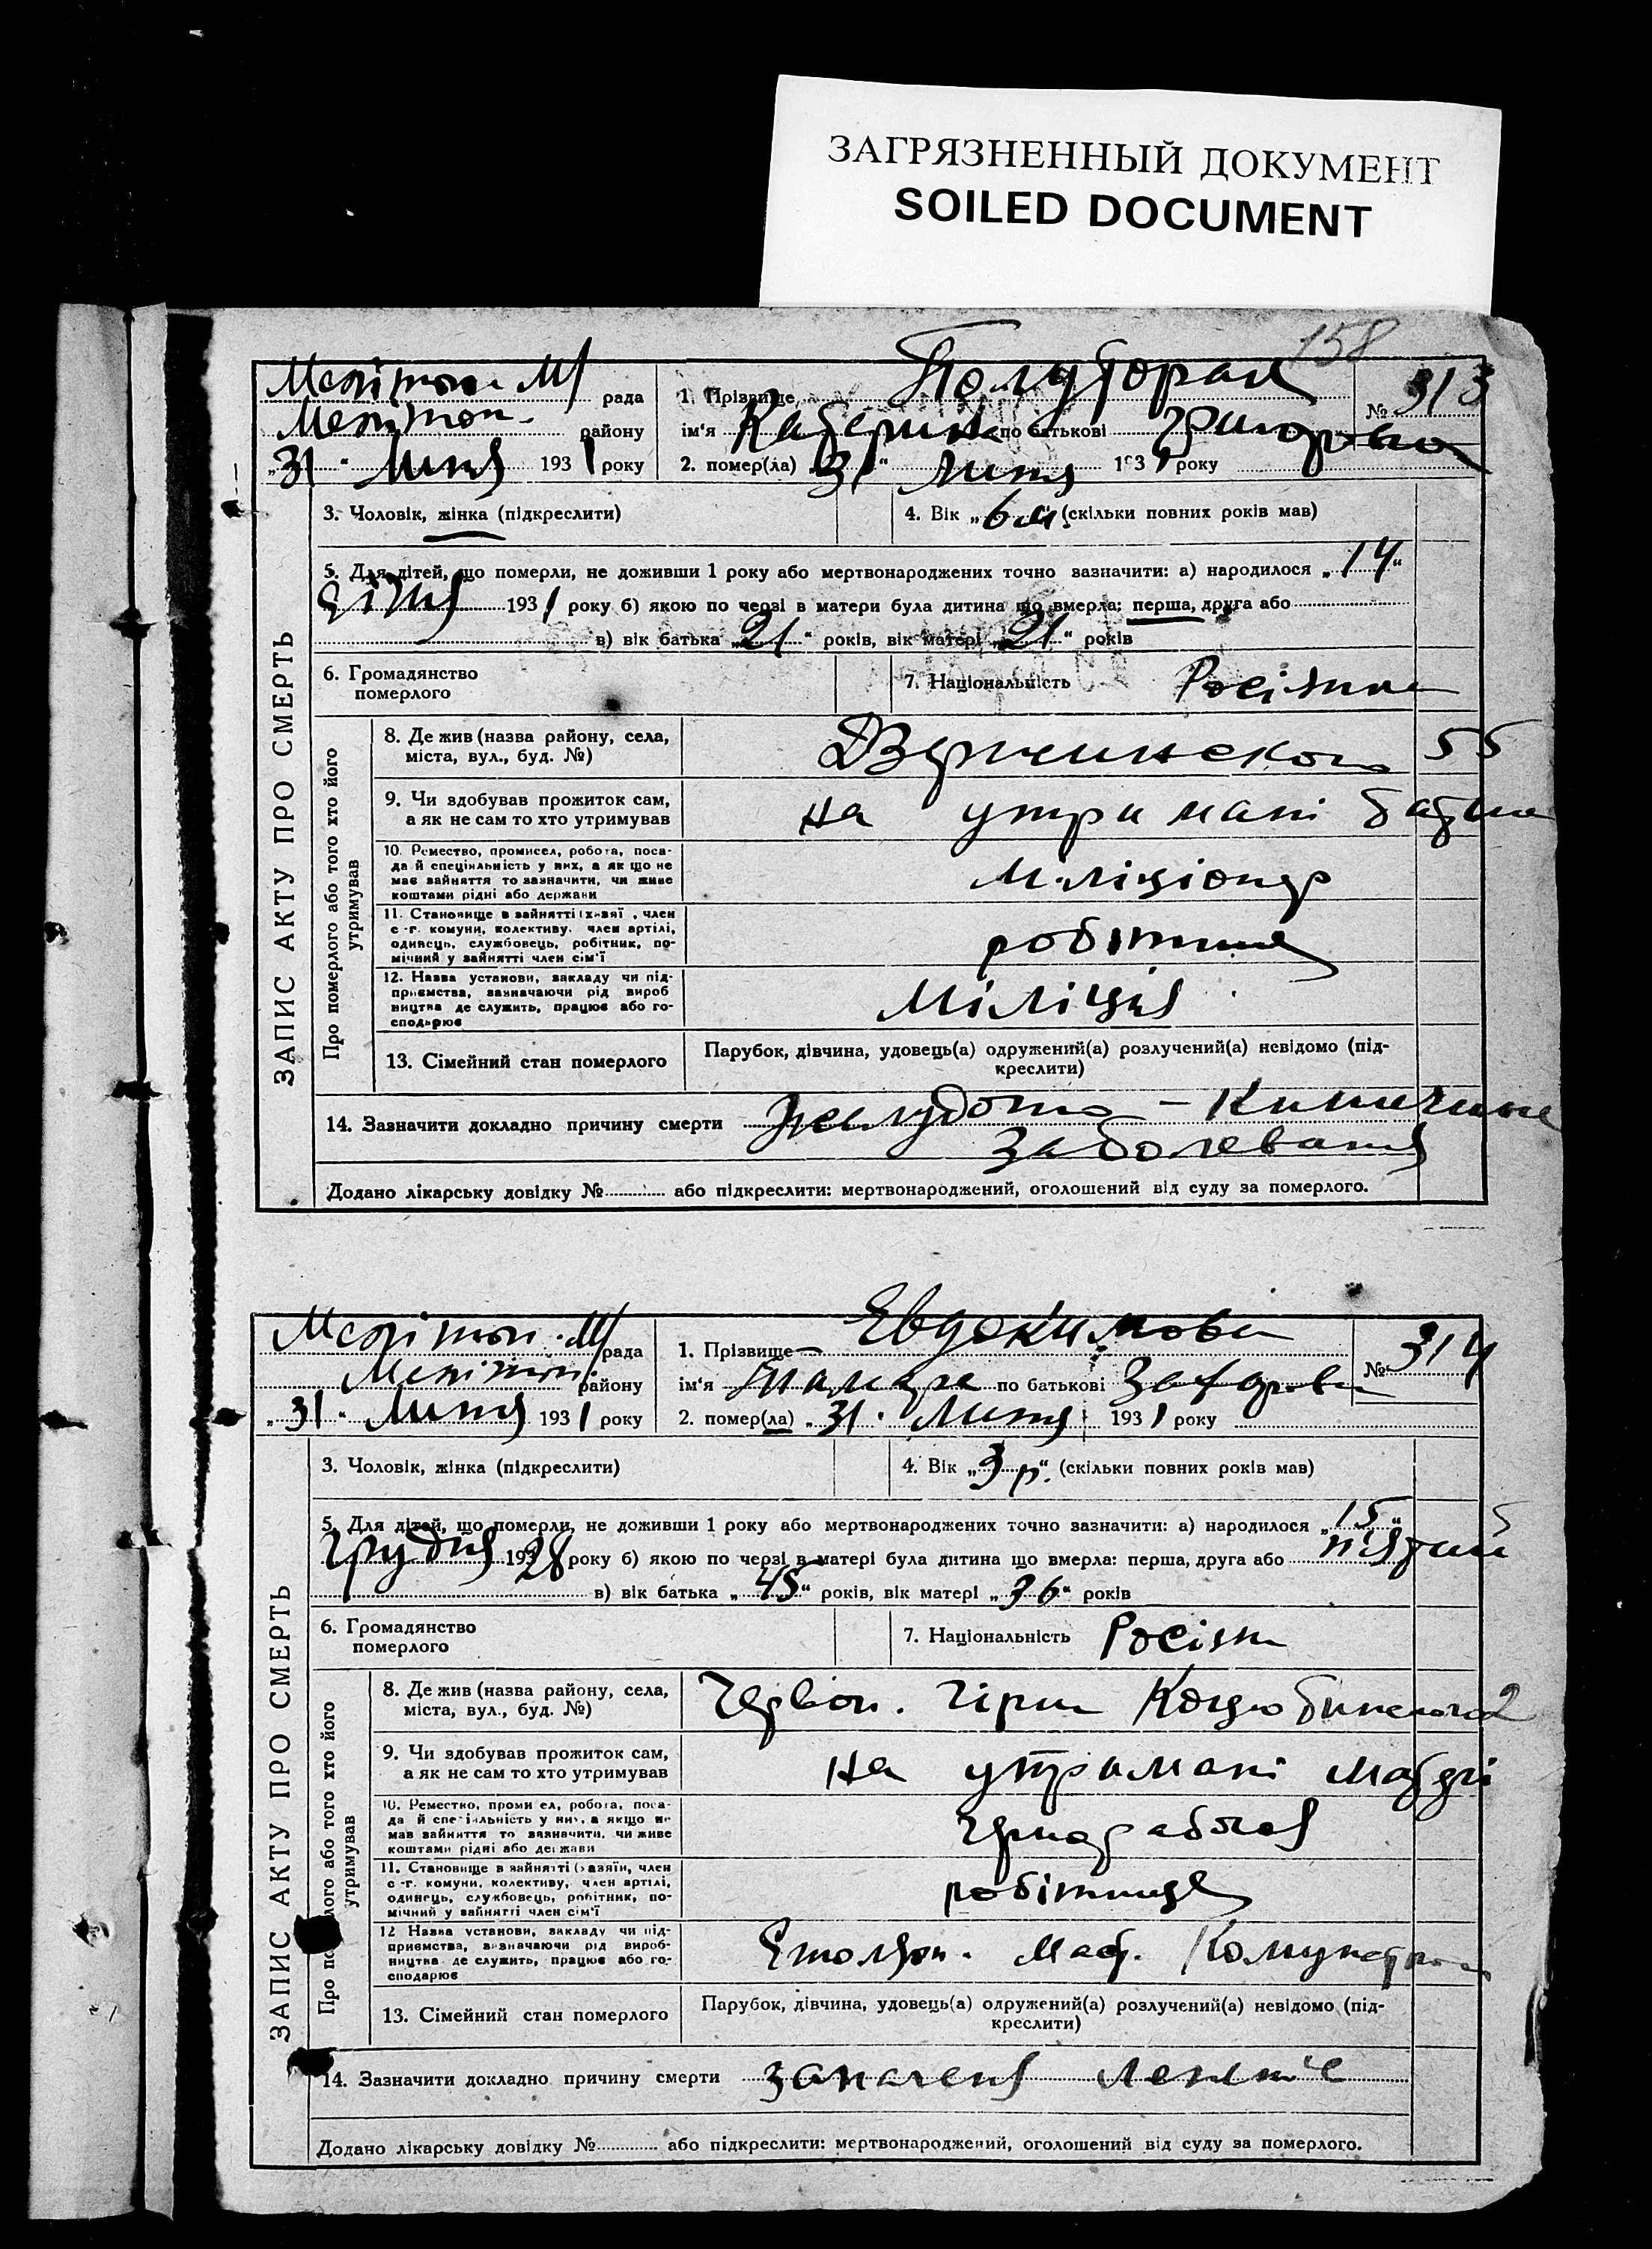 ЗАГРЯЗНЕННЫЙ ДОКУМЕНТ
SOILED DOCUMENT
158
ЗАПИС АКТУ ПРО СМЕРТЬ
Мелітоп. М/ рада
Мелітоп. району
„31“ Липня 1931 року
1. Прізвище Полуторак
№ 313
ім‘я Катерина по батькові Григоровна
2. помер(ла) „31“ Липня 1931 року
3. Чоловік, жінка (підкреслити)
4. Вік „6 м.“ (скільки повних років мав)
5. Для дітей, що померли, не доживши 1 року або мертвонароджених точно зазначити: а) народилося „14“
Січня 1931 року б) якою по черзі в матери була дитина що вмерла: перша, друга або
в) вік батька „21“ років, вік матері „21“ років
6. Громадянство
померлого
7. Національність Росіянка
Про померлого або того хто його
утримував
8. Де жив (назва району, села,
міста, вул., буд. №)
Дзержинского 55
9. Чи здобував прожиток сам,
а як не сам то хто утримував
на утримані батька
10. Ремество, промисел, робота, поса-
да й спеціяльність у них, а як що не
має зайняття то зазначити, чи живе
коштами рідні або держави
Міліціонер
11. Становище в зайнятті (хазяї, член
с.-г. комуни, колективу, член артілі,
одинець, службовець, робітник, по-
мічний у зайнятті член сім‘ї
12. Назва установи, закладу чи під-
приємства, зазначаючи рід вироб
ництва де служить, працює або го-
сподарює
Міліція
13. Сімейний стан померлого
Парубок, дівчина, удовець(а) одружений(а) розлучений(а) невідомо (під-
креслити)
14. Зазначити докладно причину смерти Желудошно - Кишечные
Заболевания
Додано лікарську довідку № або підкреслити: мертвонароджений, оголошений від суду за померлого.
ЗАПИС АКТУ ПРО СМЕРТЬ
Мелітоп. М/ рада
Мелітоп. району
„31“ Липня 1931 року
1. Прізвище Евдокимова
№ 314
ім‘я Тамара по батькові Захаровна
2. помер(ла) „31“ Липня 1931 року
3. Чоловік, жінка (підкреслити)
4. Вік „3 р.“ (скільки повних років мав)
5. Для дітей, що померли, не доживши 1 року або мертвонароджених точно зазначити: а) народилося „15“
Грудня 1928 року б) якою по черзі в матері була дитина що вмерла: перша, друга або п'ятий
в) вік батька „45“ років, вік матері „36“ років
6. Громадянство
померлого
7. Національність Росіян
Про померлого або того хто його
утримував
8. Де жив (назва району, села,
міста, вул., буд. №)
Червон. Гірка Коцюбинского 2
9. Чи здобував прожиток сам,
а як не сам то хто утримував
на утримані матері
10. Ремество, промисел, робота, поса-
да й спеціяльність у них, а якщо не
мав зайняття то зазначити, чи живе
коштами рідні або держави
Чернорабочая
11. Становище в зайнятті (хазяїн, член
с.-г. комуни, колективу, член артілі,
одинець, службовець, робітник, по-
мічний у зайнятті член сім‘ї
робітниця
12 Назва установи, закладу чи під-
приємства, зазначаючи рід вироб-
ництва де служить, працює або го-
сподарює
13. Сімейний стан померлого
Парубок, дівчина, удовець(а) одружений(а) розлучений(а) невідомо (під-
креслити)
14. Зазначити докладно причину смерти запаленя легенів
Додано лікарську довідку № або підкреслити: мертвонароджений, оголошений від суду за померлого.